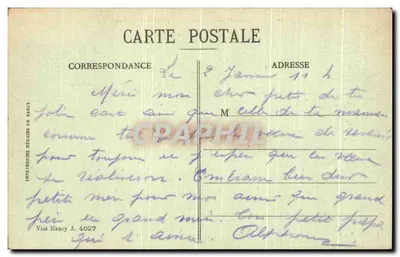 CARTE POSTALE
CORRESPONDANCE
ADRESSE
Le 2 Janvier 11 h
Merci mon cher petit de ta
jolie carte ainsi que celle de ta maman
comme toi
M
pour toujours et j'espère que les vœux
se réaliseront. Embrasse bien
petite mère pour moi ainsi que grand
père et grand mère. Ton petit papa
qui t'aime. Alphonse
Visa Nancy A. 4027
IMPRIMERIES RÉUNIES DE NANCY
CPARAMA